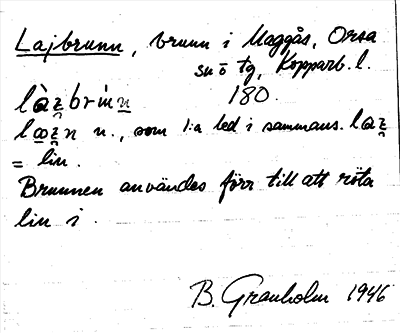 Lajbrunn, brunn i Maggås, Orsa
sn o tg, Kopparb. l.
180.
n., som 1:a led i sammans.
= lin.
Brunnen användes förr till att röta
lin i.
B. Granholm 1946